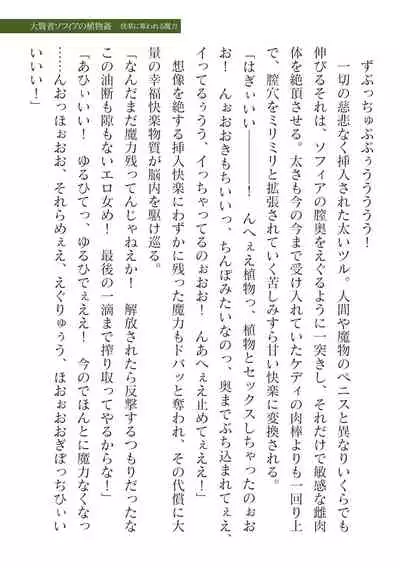 大賢者ソフィアの植物姦　快楽に奪われる魔力
ずぶっぢゅぶぶぅうううう！
　一切の慈悲なく挿入された太いツル。人間や魔物のペニスと異なりいくらでも
伸びるそれは、ソフィアの膣奥をえぐるように一突きし、それだけで敏感な雌肉
体を絶頂させる。太さも今の今まで受け入れていたケディの肉棒よりも一回り上
で、膣穴をミリミリと拡張されていく苦しみすら甘い快楽に変換される。
「はぎぃいい――――！　んへぇえ植物っ、植物とセックスしちゃったのぉお
お！　んぉおおきもちいいっ、ちんぽみたいなのっ、奥までぶち込まれてぇえ、
イってるぅうう、イっちゃってるのぉおお！　んあへぇえ止めてぇええ！」
　想像を絶する挿入快楽にわずかに残った魔力もドバッと奪われ、その代償に大
量の幸福快楽物質が脳内を駆け巡る。
「なんだまだ魔力残ってんじゃねえか！　解放されたら反撃するつもりだったな
この油断も隙もないエロ女め！　最後の一滴まで搾り取ってやるからな！」
「あひぃいい！　ゆるひてっ、ゆるひでぇええ！　今のでほんとに魔力なくなっ
……んおっほぉおお、それらめぇえ、えぐりゅぅう、ほおぉおおぎぼっぢひぃい
いいい！」